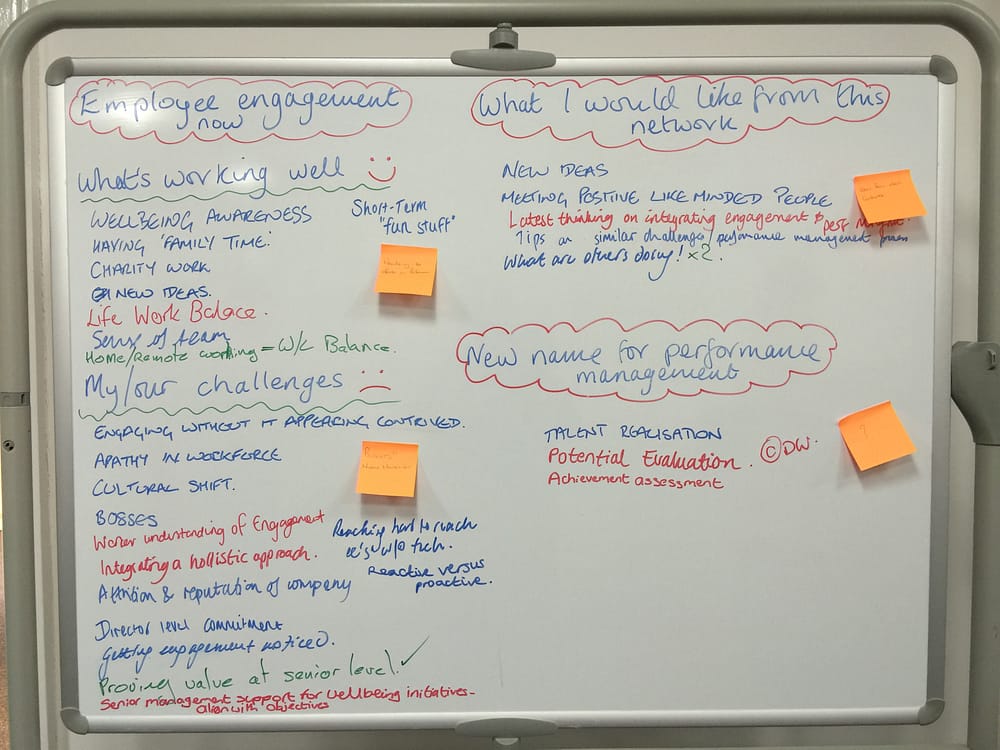 Employee engagement
now
What's working well
WELLBEING AWARENESS
HAVING 'FAMILY TIME'
CHARITY WORK
NEW IDEAS.
Life Work Balace.
Sense of team
Home/Remote working = W/L Balance.
Short-Term
"fun stuff"
My/our challenges
ENGAGING WITHOUT IT APPEARING CONTRIVED.
APATHY IN WORKFORCE
CULTURAL SHIFT.
BOSSES
Worker understanding of Engagement
Integrating a hollistic approach.
Attrition & reputation of company
Reaching hard to reach
ee's w/o tech.
Reactive versus
proactive.
Director level commitment
Getting engagement noticed.
Proving value at senior level. ✓
Senior management support for wellbeing initiatives -
align with objectives
What I would like from this
network
NEW IDEAS
MEETING POSITIVE LIKE MINDED PEOPLE
Latest thinking on integrating engagement & perf mngmt.
Tips on similar challenges/performance management process
What are others doing! x2.
New name for performance
management
TALENT REALISATION
Potential Evaluation. © DW.
Achievement assessment
?